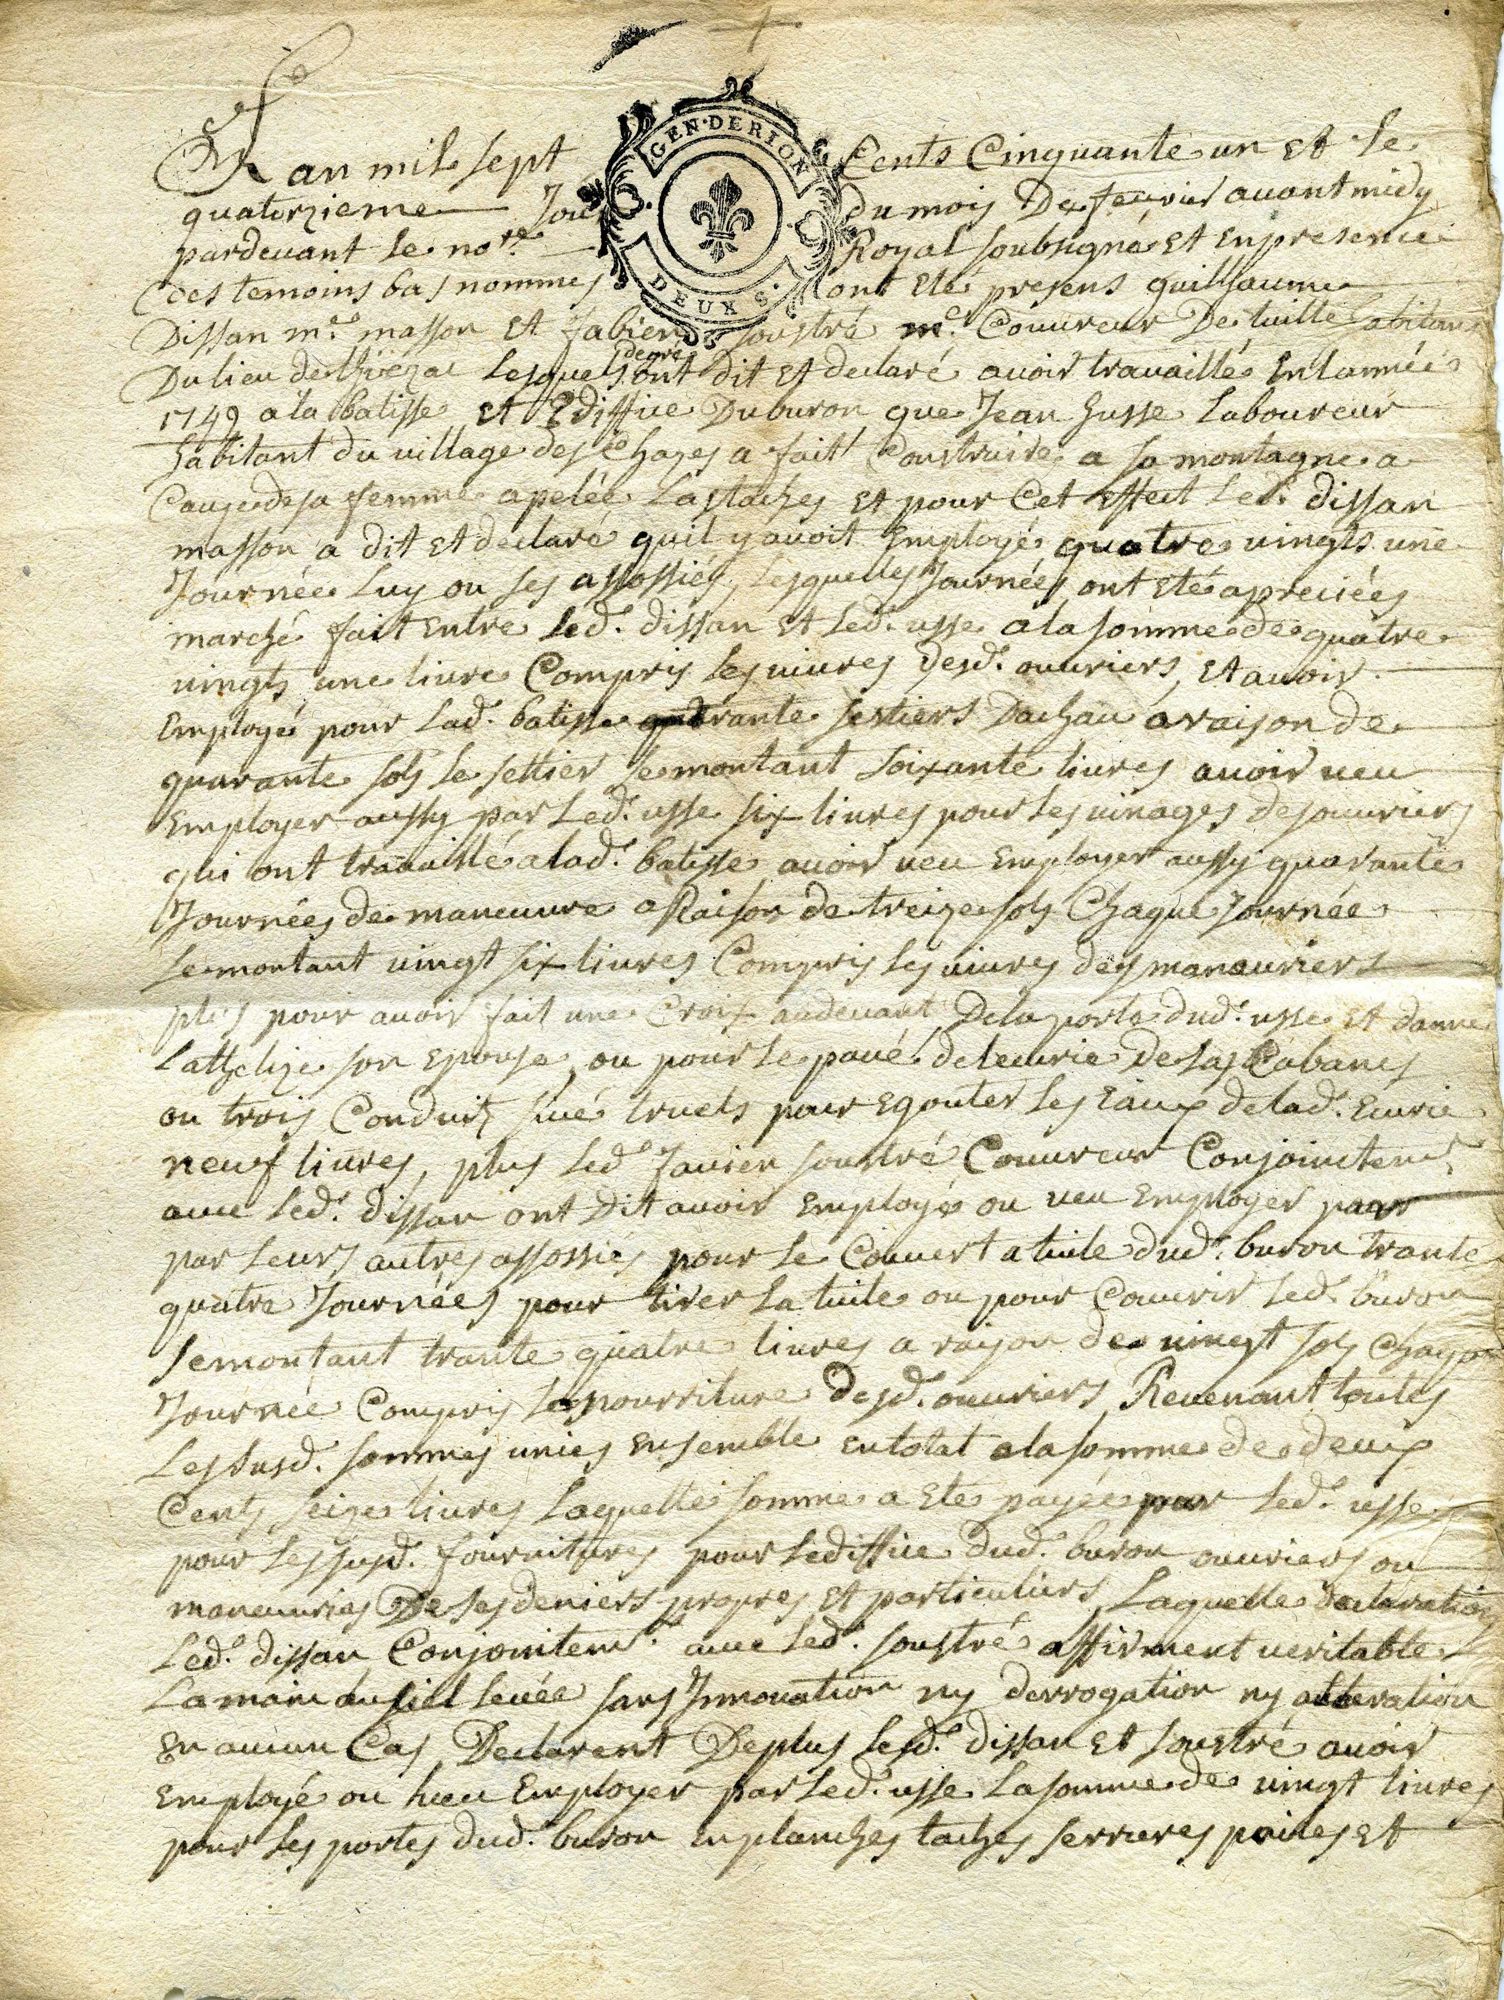 GEN. DE RION
DEUX S.
L'an mil sept Cents Cinquante un et le
quatorzieme Jour du mois De feuvrier avant midy
pardevant le nore Royal soubsigné et en presence
des temoins bas nommes ont eté presens guilhaume
Dissan me masson et fabien soustré me Couvreur De tuille habitans
Du lieu de thiezac Lesquels degré ont dit et declaré avoir travaillé En lannée
1749 a la batisse et Ediffice Du buron que Jean husse Laboureur
habitant du village des Chazes a fait Construire a sa montagne a
Cause de sa femme apelée Lastaches et pour Cet effect Led. dissan
masson a dit et declaré quil y avoit Employé quatre vingts une
Journée Luy ou ses assossiés, Lesquelles Journées ont eté apreciées
marché fait entre Led. dissan et Led. usse a la somme de quatre
vingts une livre Compris les vivres desd. ouvriers, et avoir
Employé pour Lad. batisse quarante sestiers Dachau a raison de
quarante sols le settier se montant soixante livres avoir veu
Employer aussy par Led. usse six livres pour les vinages des ouvriers
qui ont travaillé a lad. batisse avoir veu Employer aussy quarante
Journées de maneuvre a Raison de treize sols Chaque Journée
se montant vingt six livres Compris les vivres des manauvriers
plus pour avoir fait une Croix audevant De la porte dud. usse et danne
son Epouse, ou pour le pavé de lecurie De las Cabanes
ou trois Conduit, sivé truets pour Egouter les Eaux de lad. Ecurie
neuf livres, plus Led. Javier soustré Couvreur Conjointemt
avec Led. dissan ont Dit avoir Employé ou veu Employer par
par leurs autres assossiés pour le Couvert a tuile dud. buron trante
quatre Journées pour tirer La tuile ou pour Couvrir Led. buron
se montant trante quatre livres a raison de vingt sols Chaque
Journée Compris la nourriture Desd. ouvriers, Revenant toutes
Les susd. sommes unies ensemble en total a la somme de deux
Cents seize livres Laquelle somme a eté payée par Led. usse
pour les susd. fournitures pour lediffice dud. buron ouvriers ou
maneuvries De ses deniers propres et particuliers, Laquelle declaration
Led. dissan Conjointemt avec Led. soustré affirment veritable
La main au siel levée sans Innovation ny derrogation ny alteration
En aucun Cas, Declarent De plus Lesd. dissan et soustré avoir
Employé ou heu Employer par Led. usse La somme de vingt livres
pour les portes dud. buron en planches taches serrures poiles et